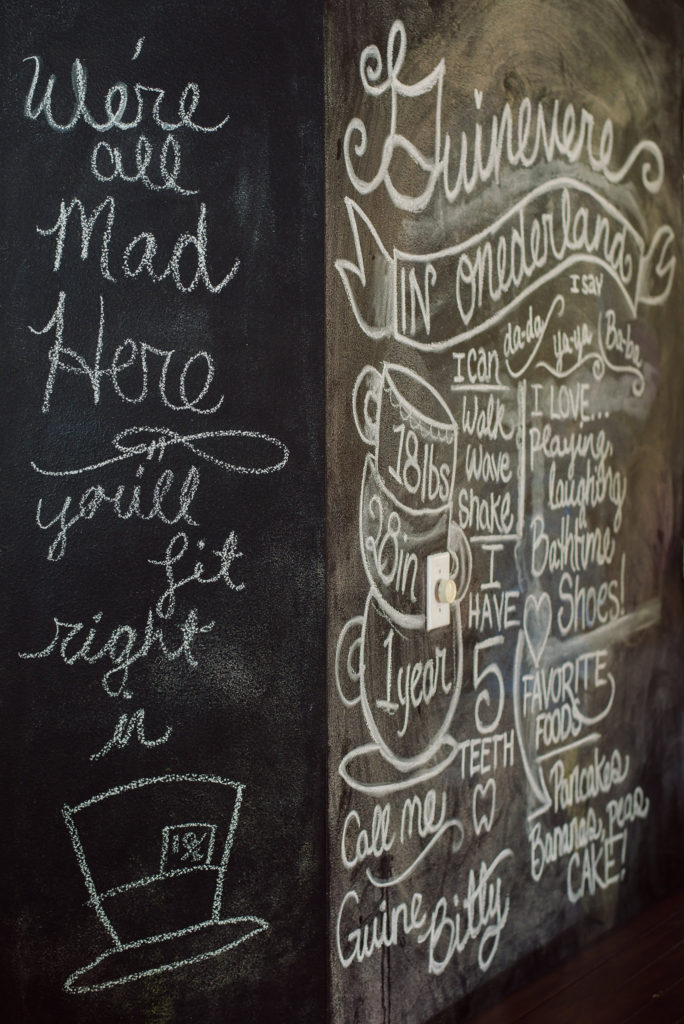 We're
all
Mad
Here
you'll
fit
right
in
Guinevere
IN Onederland
I say
da-da ya-ya Ba-ba
I can
Walk
Wave
Shake
I
HAVE
5
TEETH
18lbs
28in
1year
Call me
Guine Bitty
I LOVE...
Playing,
laughing
Bathtime
Shoes!
FAVORITE
FOODS
Pancakes
Bananas, peas
CAKE!